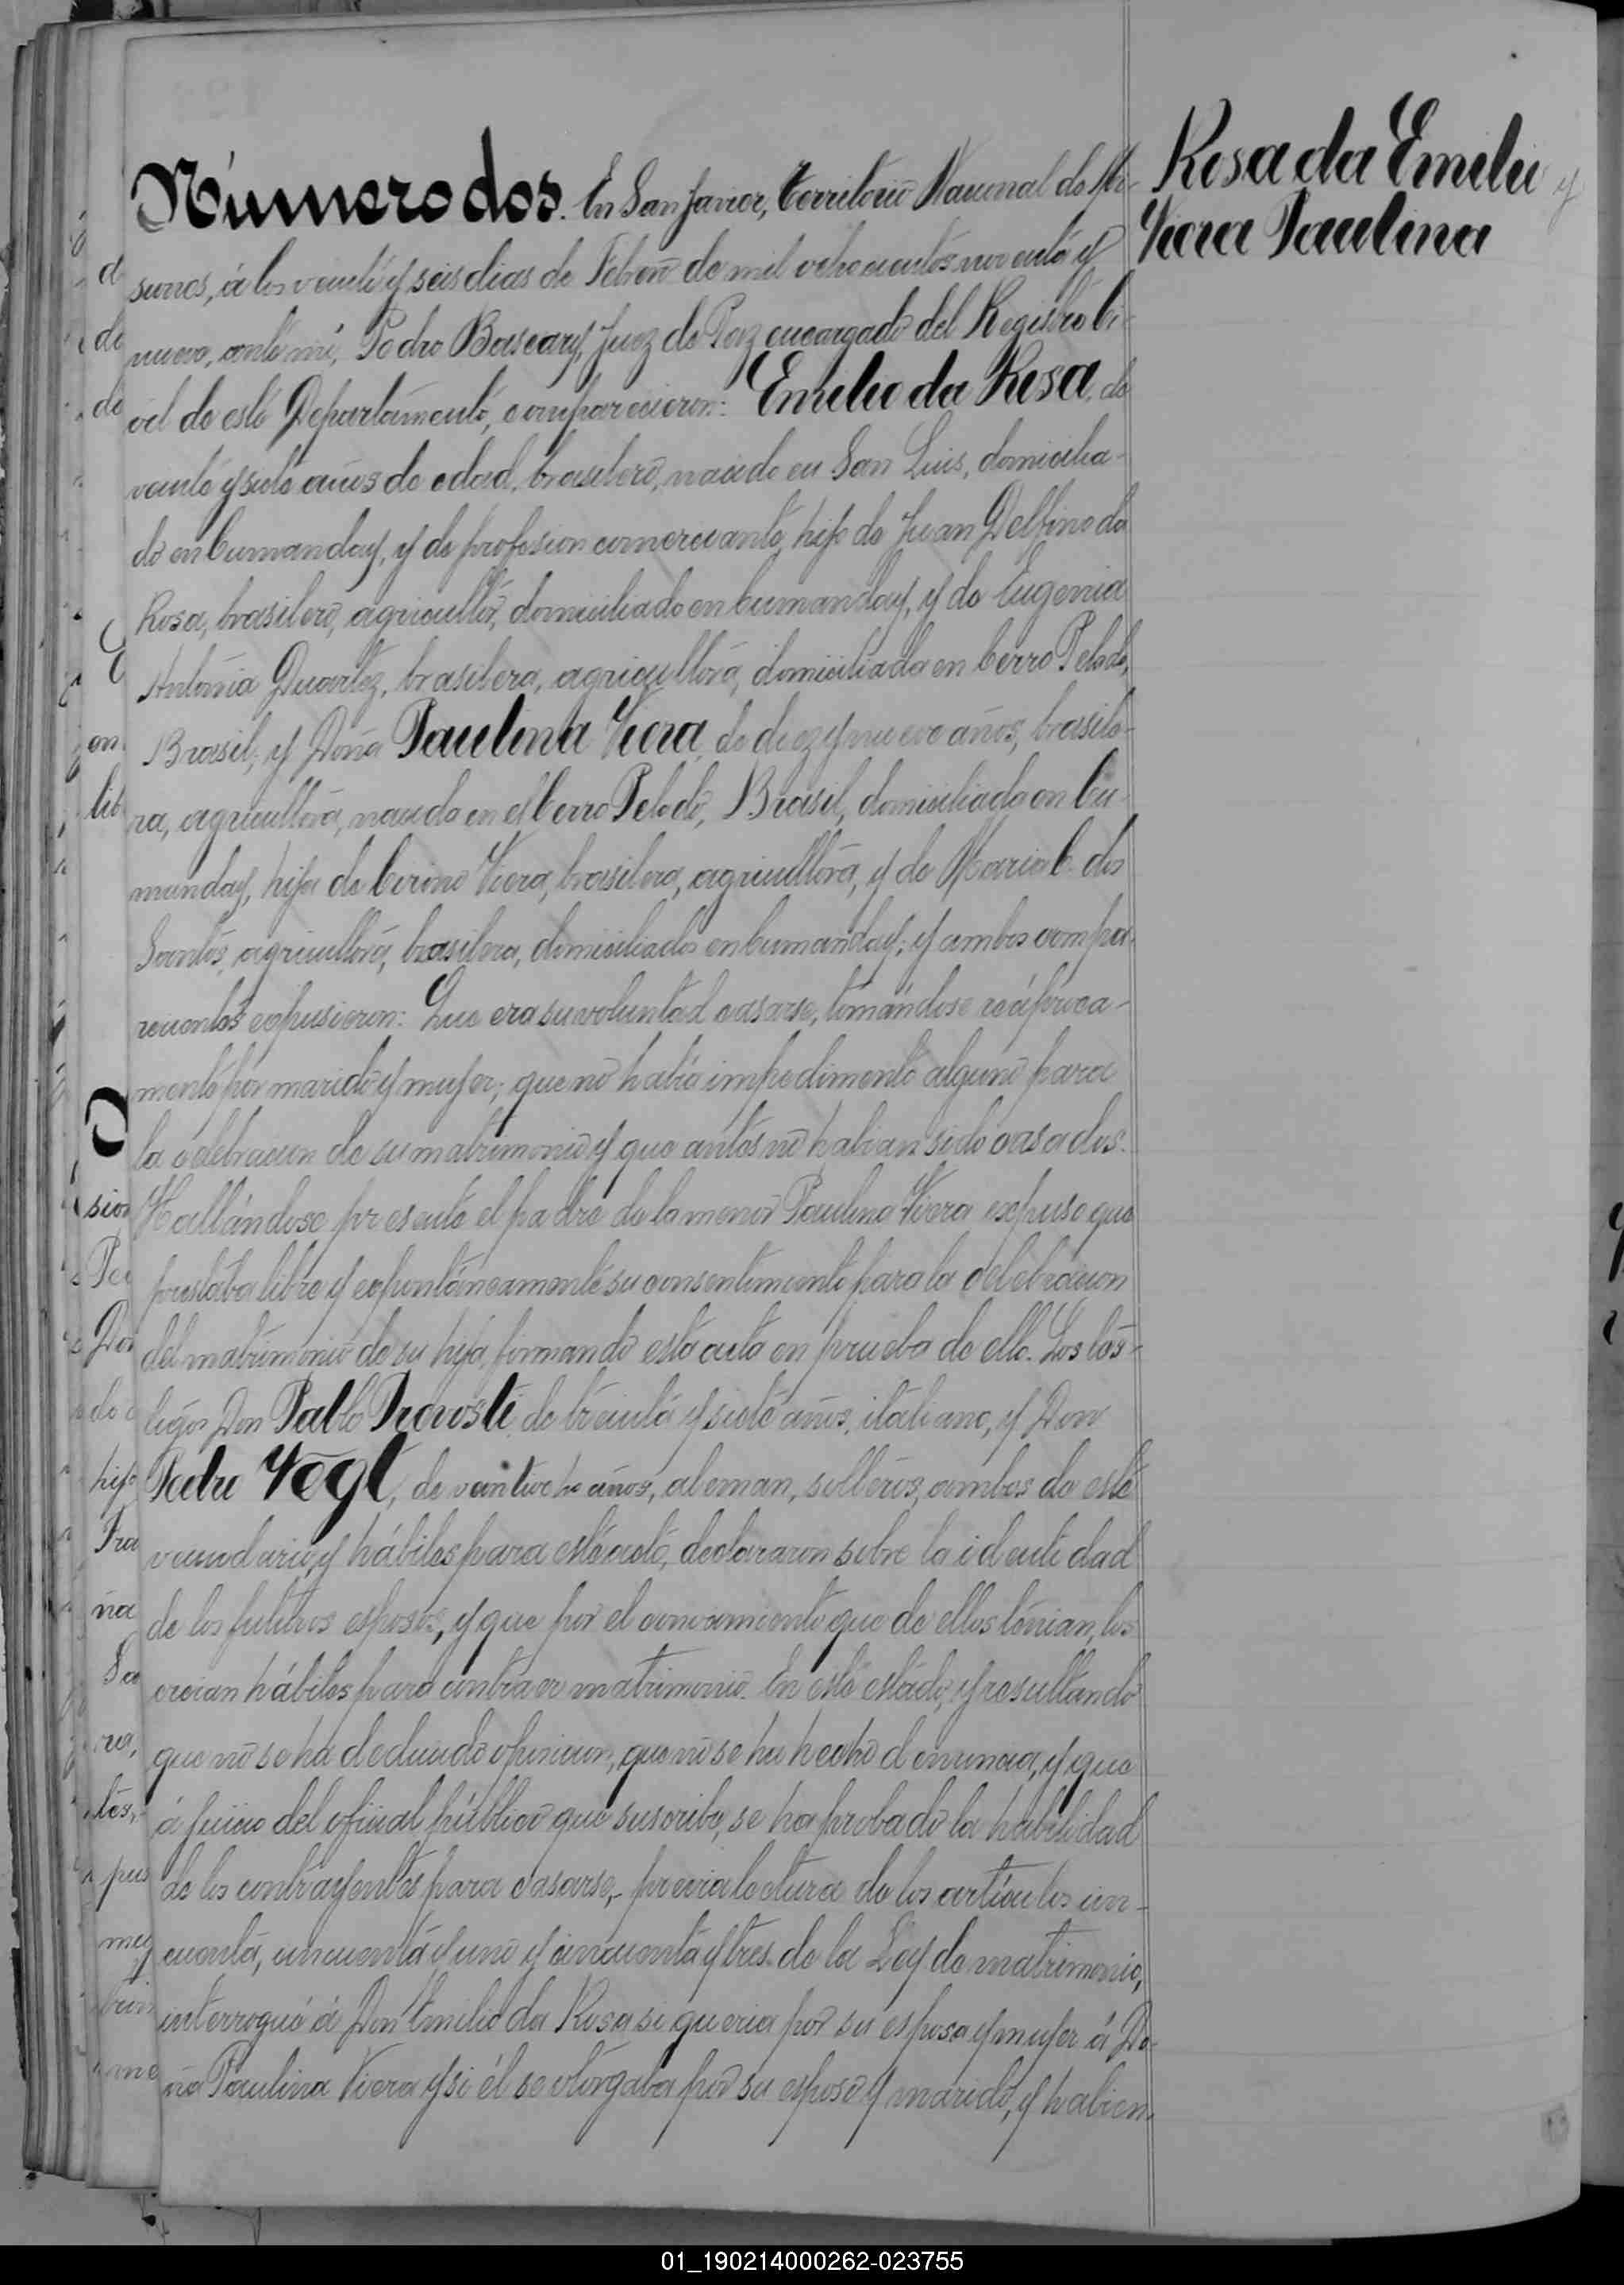 Rosa da Emilio y
Viera Paulina
Número dos. En San Javier, Territorio Nacional de Mi-
siones, á los veinte y seis dias de Febrero de mil ochocientos noventa y
nueve, ante mi, Pedro Bascary, Juez de Paz encargado del Registro Ci-
vil de este Departamento, comparecieron: Emilio da Rosa, de
veinte y siete años de edad, brasilero, nacido en San Luis, domicilia-
do en Cumanday, y de profesion comerciante, hijo de Juan Delfino da
Rosa, brasilero, agricultor, domiciliado en Cumanday, y de Eugenia
Antonia Duartez, brasilera, agricultora, domiciliada en Cerro Pelado,
Brasil; y Doña Paulina Viera, de diez y nueve años, brasile-
ra, agricultora, nacida en el Cerro Pelado, Brasil, domiciliada en Cu-
manday, hija de Cirino Viera, brasilero, agricultor, y de Maria C. dos
Santos, agricultora, brasilera, domiciliados en Cumanday; y ambos compa-
recientes expusieron: Que era su voluntad casarse, tomándose recíproca-
mente por marido y mujer; que no habia impedimento alguno para
la celebracion de su matrimonio y que antes no habian sido casados.
Hallándose presente el padre de la menor Paulina Viera expuso que
prestaba libre y expontáneamente su consentimiento para la celebracion
del matrimonio de su hija, firmando esta acta en prueba de ello. Los tes-
tigos Don Pablo Provosti, de treinta y siete años, italiano, y Don
Pedro Vogt, de veintiocho años, aleman, solteros, ambos de este
vecindario, y hábiles para este acto, declararon sobre la identidad
de los futuros esposos, y que por el conocimiento que de ellos tenian, los
creian hábiles para contraer matrimonio. En este estado, y resultando
que no se ha deducido oposicion, que no se ha hecho denuncia, y que
á juicio del oficial público que suscribe, se ha probado la habilidad
de los contrayentes para casarse,- previa lectura de los artículos cin-
cuenta, cincuenta y uno y cincuenta y tres de la Ley de matrimonio,
interrogué á Don Emilio da Rosa si queria por su esposa y mujer á Do-
ña Paulina Viera y si él se otorgaba por su esposo y marido, y habien-
01_190214000262-023755